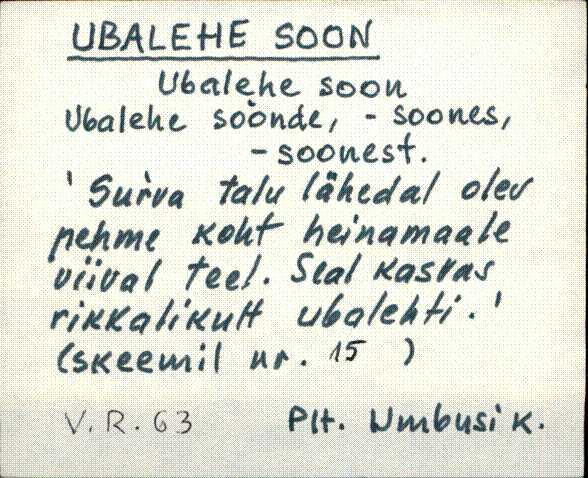 UBALEHE SOON
Ubalehe soon
Ubalehe soònde, - soones,
- soonest.
' Suŕva talu lähedal olev
pehme koht heinamaale
viival teel. Seal kasvas
rikkalikult ubalehti.'
(skeemil nr. 15 )
V. R. 63 Plt. Umbusi k.